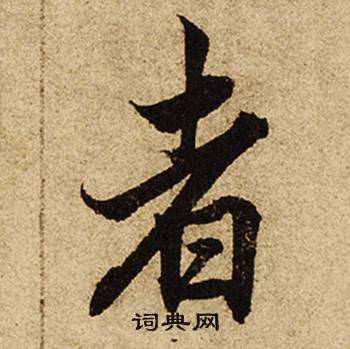 者
词典网